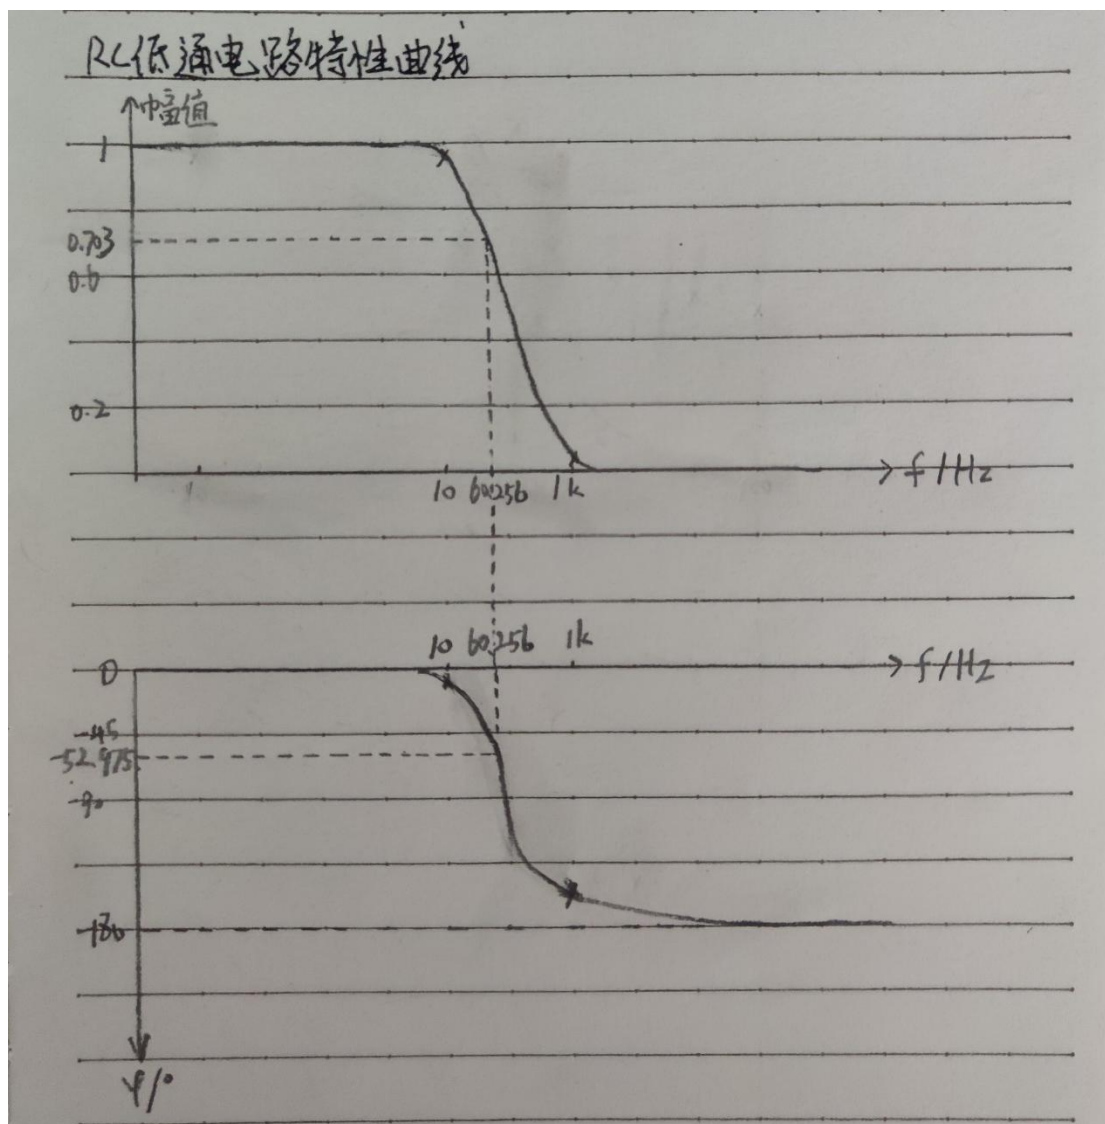 RC低通电路特性曲线
幅值
1
0.703
0.6
0.2
10 60.256 1k
f/Hz
10 60.256 1k
0
f/Hz
-45
-52.975
-90
-180
φ/°